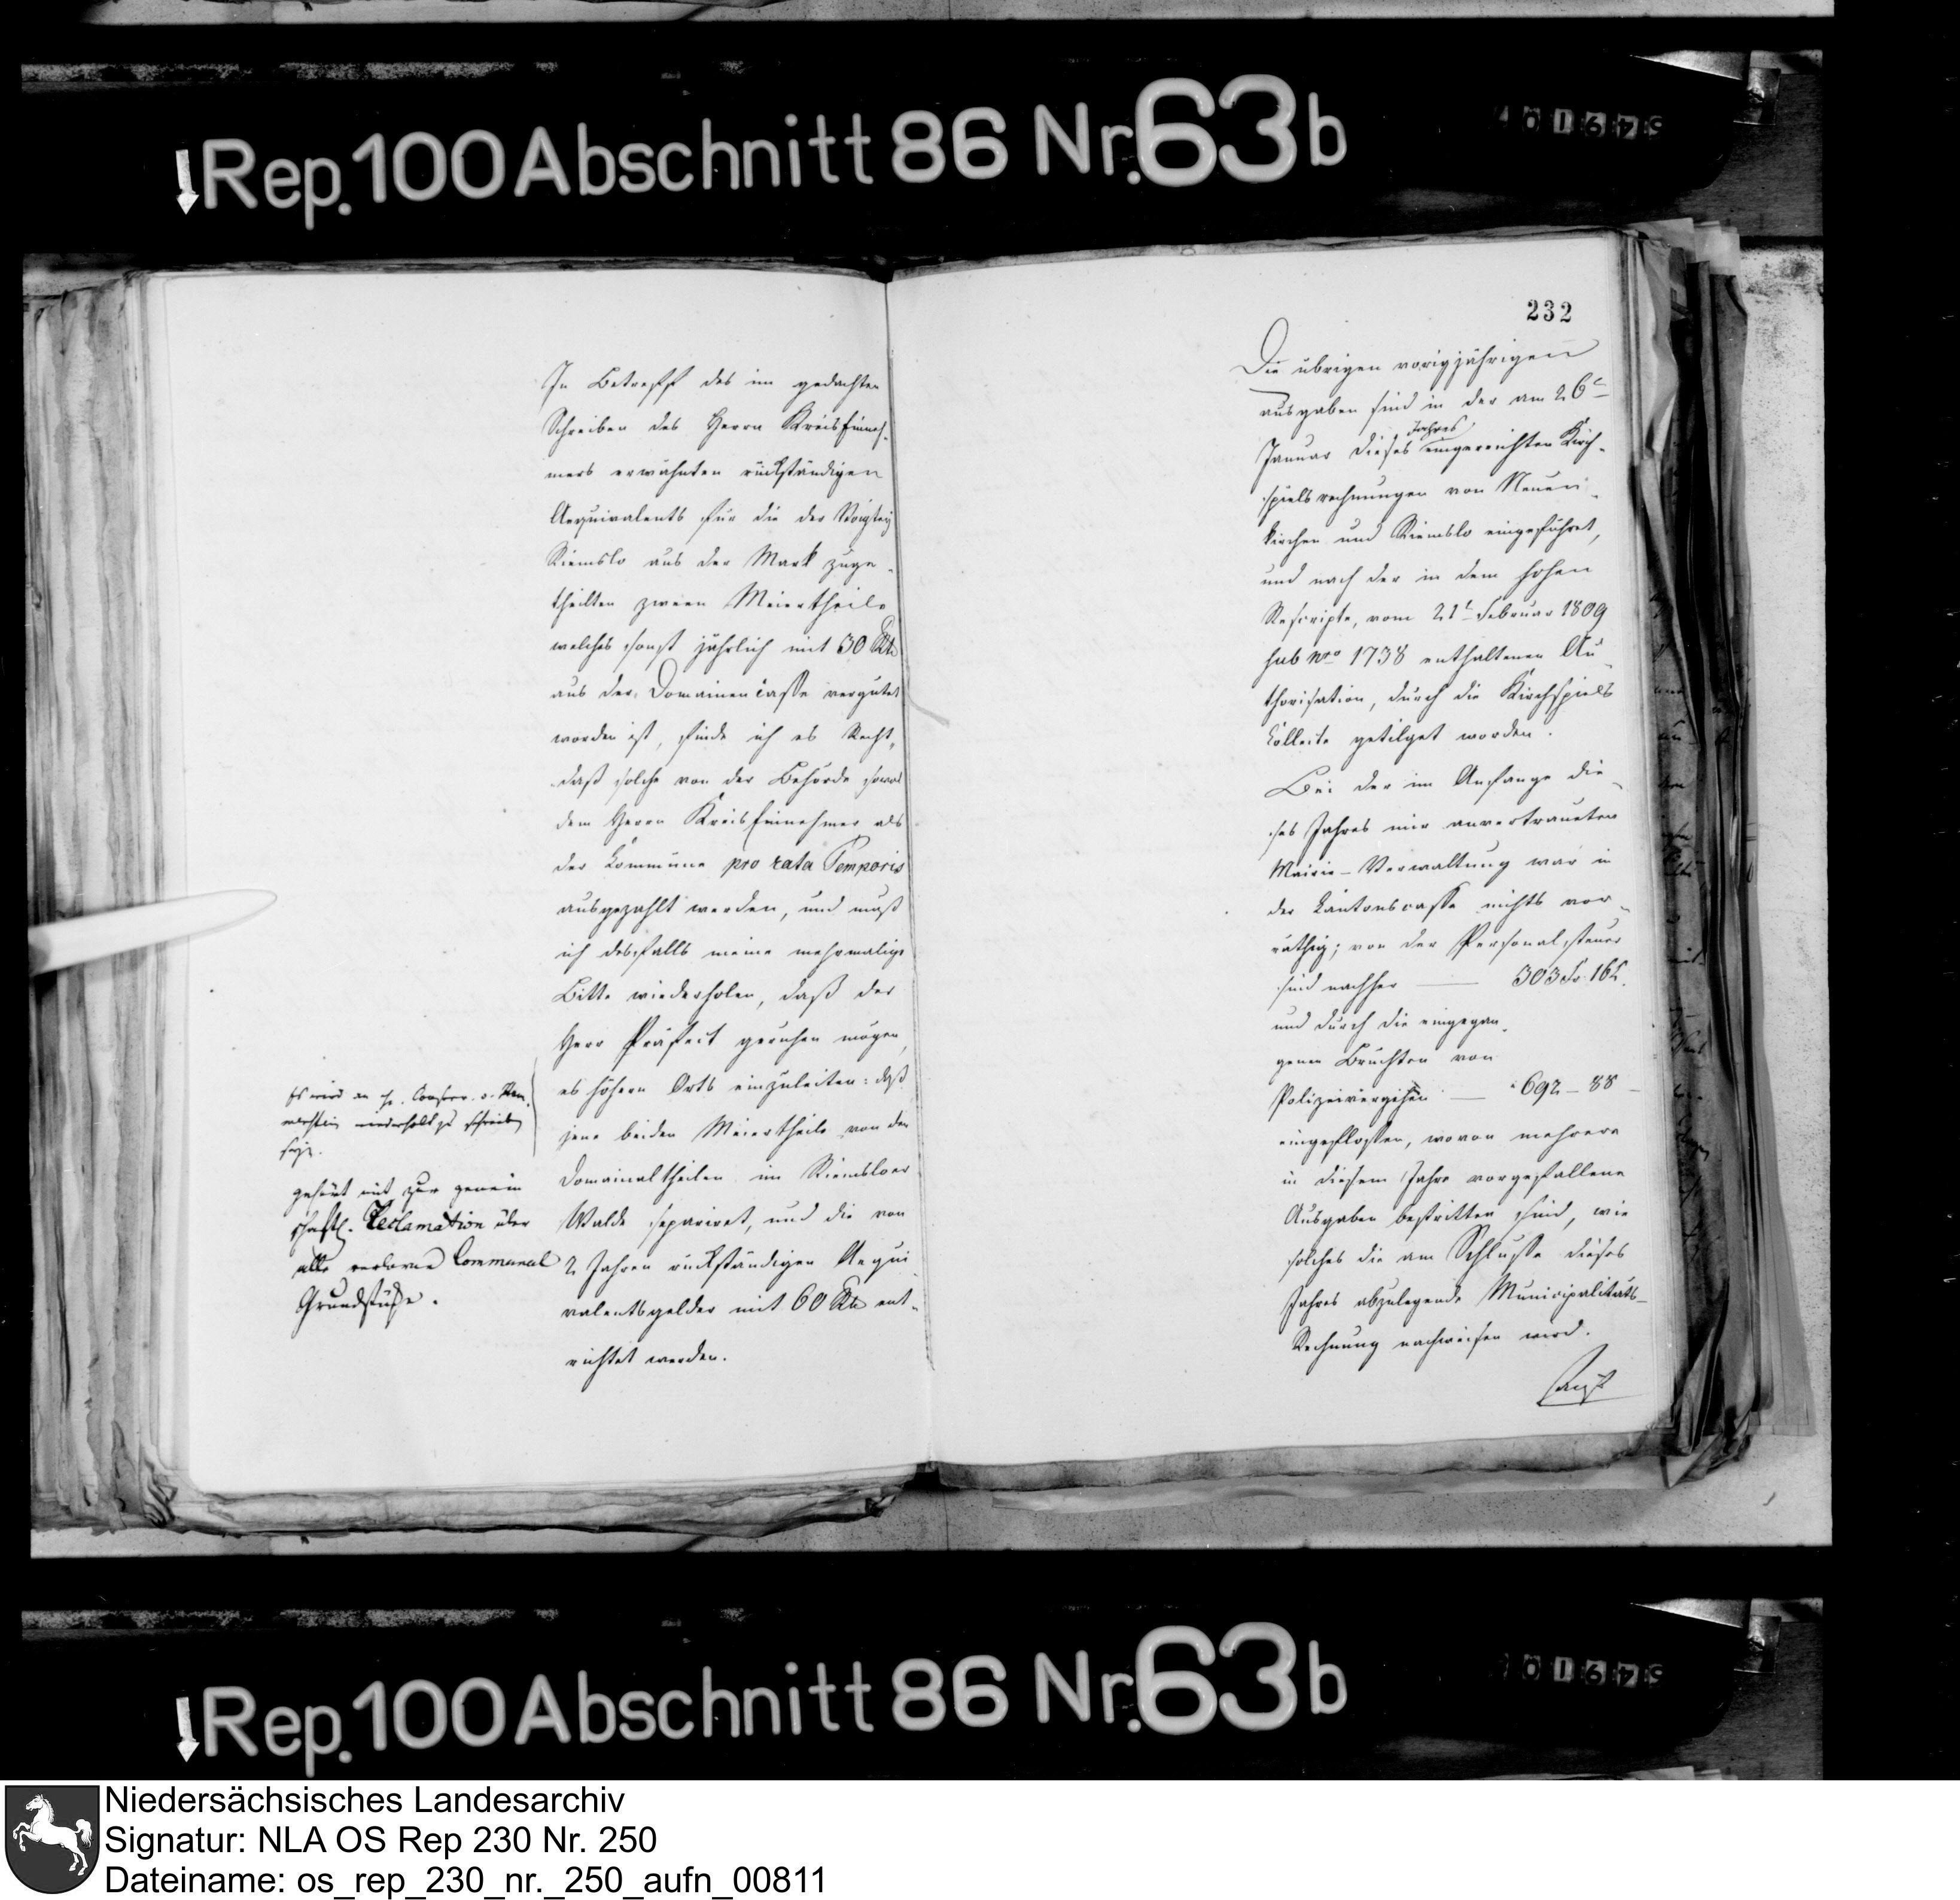 Rep. 100 Abschnitt 86 Nr. 63 b
In Betreff des im gedachten
Schreiben des Herrn Kreiseinneh-
mers erwähnten rückständigen
Aequivalents für die der Voigtey
Riemslo aus der Mark zuge-
theilten zween Meiertheile
welches sonst jährlich mit 30 Rtl
aus der Domainencasse vergütet
worden ist, finde ich es Recht,
daß solche von der Behörde sowol
dem Herrn Kreiseinnehmer als
der Commune pro rata Temporis
ausgezahlt werden, und muß
ich desfalls meine mehrmalige
Bitte wiederholen, daß der
Herr Präfect geruhen mögen,
es höhern Orts einzuleiten: daß
jene beiden Meiertheile von den
Domainaltheilen im Riemsloer
Walde separiret, und die von
2 Jahren rückständigen Aequi-
valentsgelder mit 60 Rtl ent-
richtet werden.
Es wird an H.
wiederholt zu schreiben
gehört mit zur gemein
schaftl. Reclamation über
alle verlorne Communal
Grundstücke.
232
Die übrigen vorigjährigen
ausgaben sind in der am 26t
Januar dieses Jahres eingereichten Kirch-
spielsrechnungen von Neuen-
kirchen und Riemslo eingeführet,
und nach der in dem hohen
Rescripte, vom 21t Februar 1809
sub Nro 1738 enthaltenen Au-
thorisation, durch die Kirchspiels
Collecte getilget worden.
Bei der im Anfange die-
ses Jahres mir anvertraueten
Mairie-Verwaltung war in
der Cantonscasse nichts vor-
räthig; von der Personalsteuer
sind nachher — 303 Fr. 16 C.
und durch die eingegan-
genen Brüchten von
Polizeivergehen — 692 – 88 –
eingeflossen, wovon mehrere
in diesem Jahre vorgefallene
Ausgaben bestritten sind, wie
solches die am Schlusse dieses
Jahres abzulegende Municipalitäts-
Rechnung nachweisen wird.
Rep. 100 Abschnitt 86 Nr. 63 b
Niedersächsisches Landesarchiv
Signatur: NLA OS Rep 230 Nr. 250
Dateiname: os_rep_230_nr._250_aufn_00811